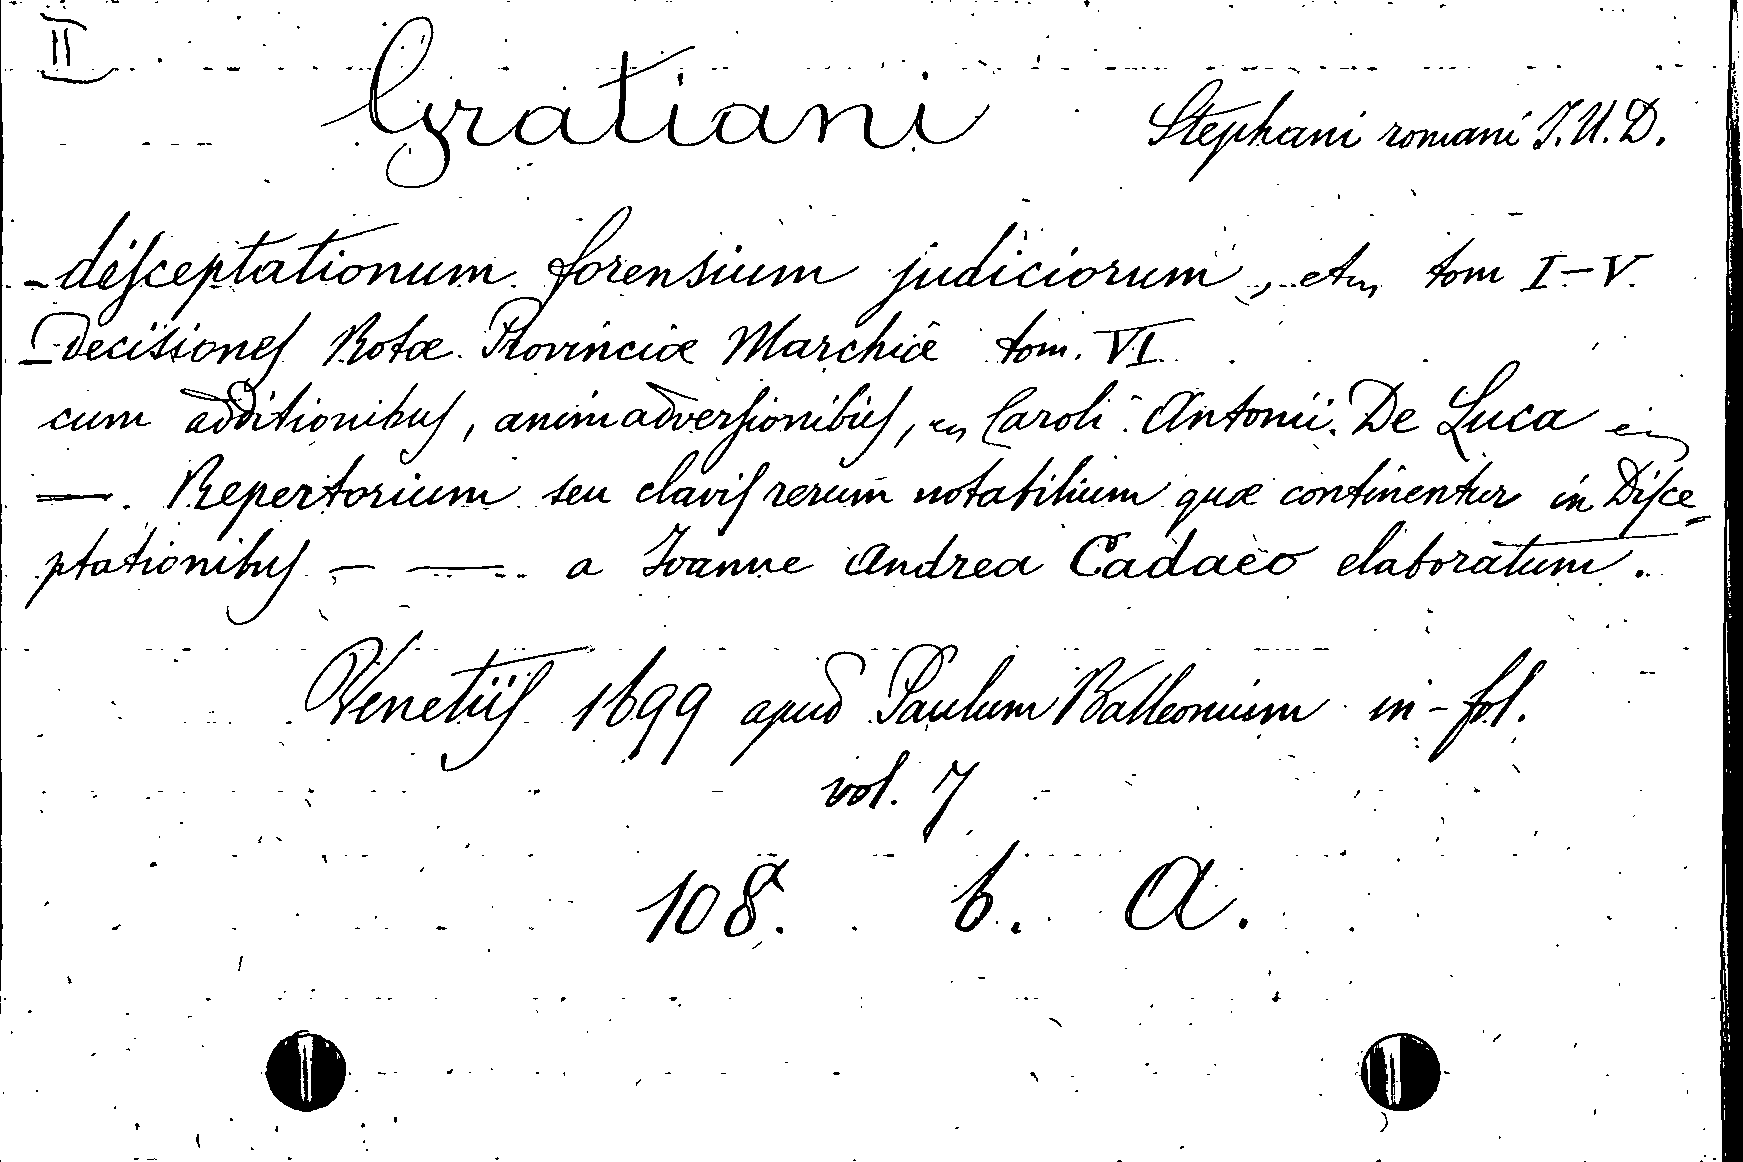 II
Gratiani Stephani romani J.U.D.
- disceptationum forensium judiciorum, etc, tom I-V.
- Decisiones Rotæ Provinciæ Marchiæ tom. VI
cum additionibus, animadversionibus, Caroli Antonii De Luca
—. Repertorium seu clavis rerum notabilium quæ continentur in Disce-
ptationibus — — a Ioanne Andrea Cadaeo elaboratum.
Venetiis 1699 apud Paulum Balleonium in-fol.
vol. 7
108. b. A.